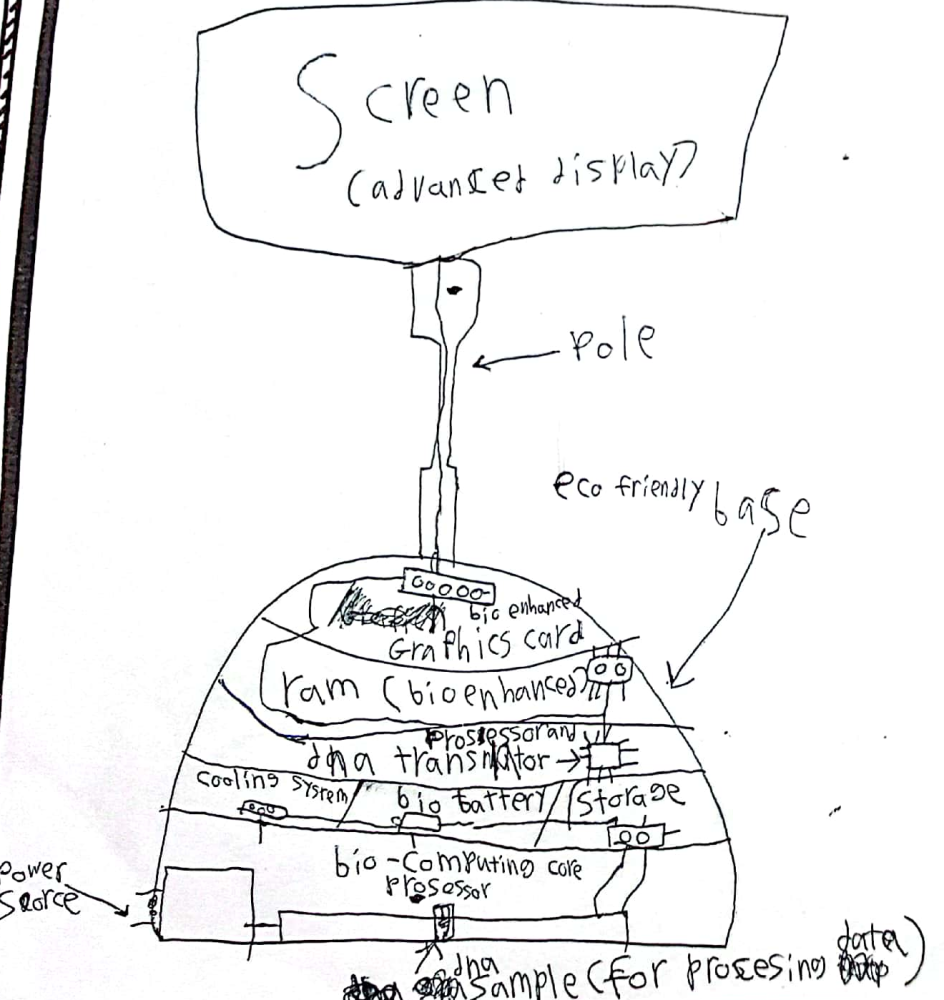 Screen
(advansed display)
pole
eco friendly base
bio enhanced
Graphics card
ram (bioenhanced)
prossessor and
dna transmitor
cooling system
bio battery
Storage
bio-computing core
prosessor
power
Sorce
dna
sample (for prossesing data)